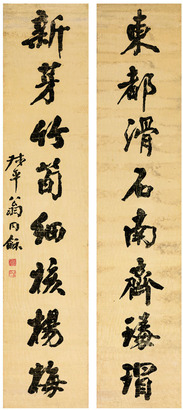 東都滑石南齊瑇瑁
新芽竹筍細核楊梅
叔平翁同龢